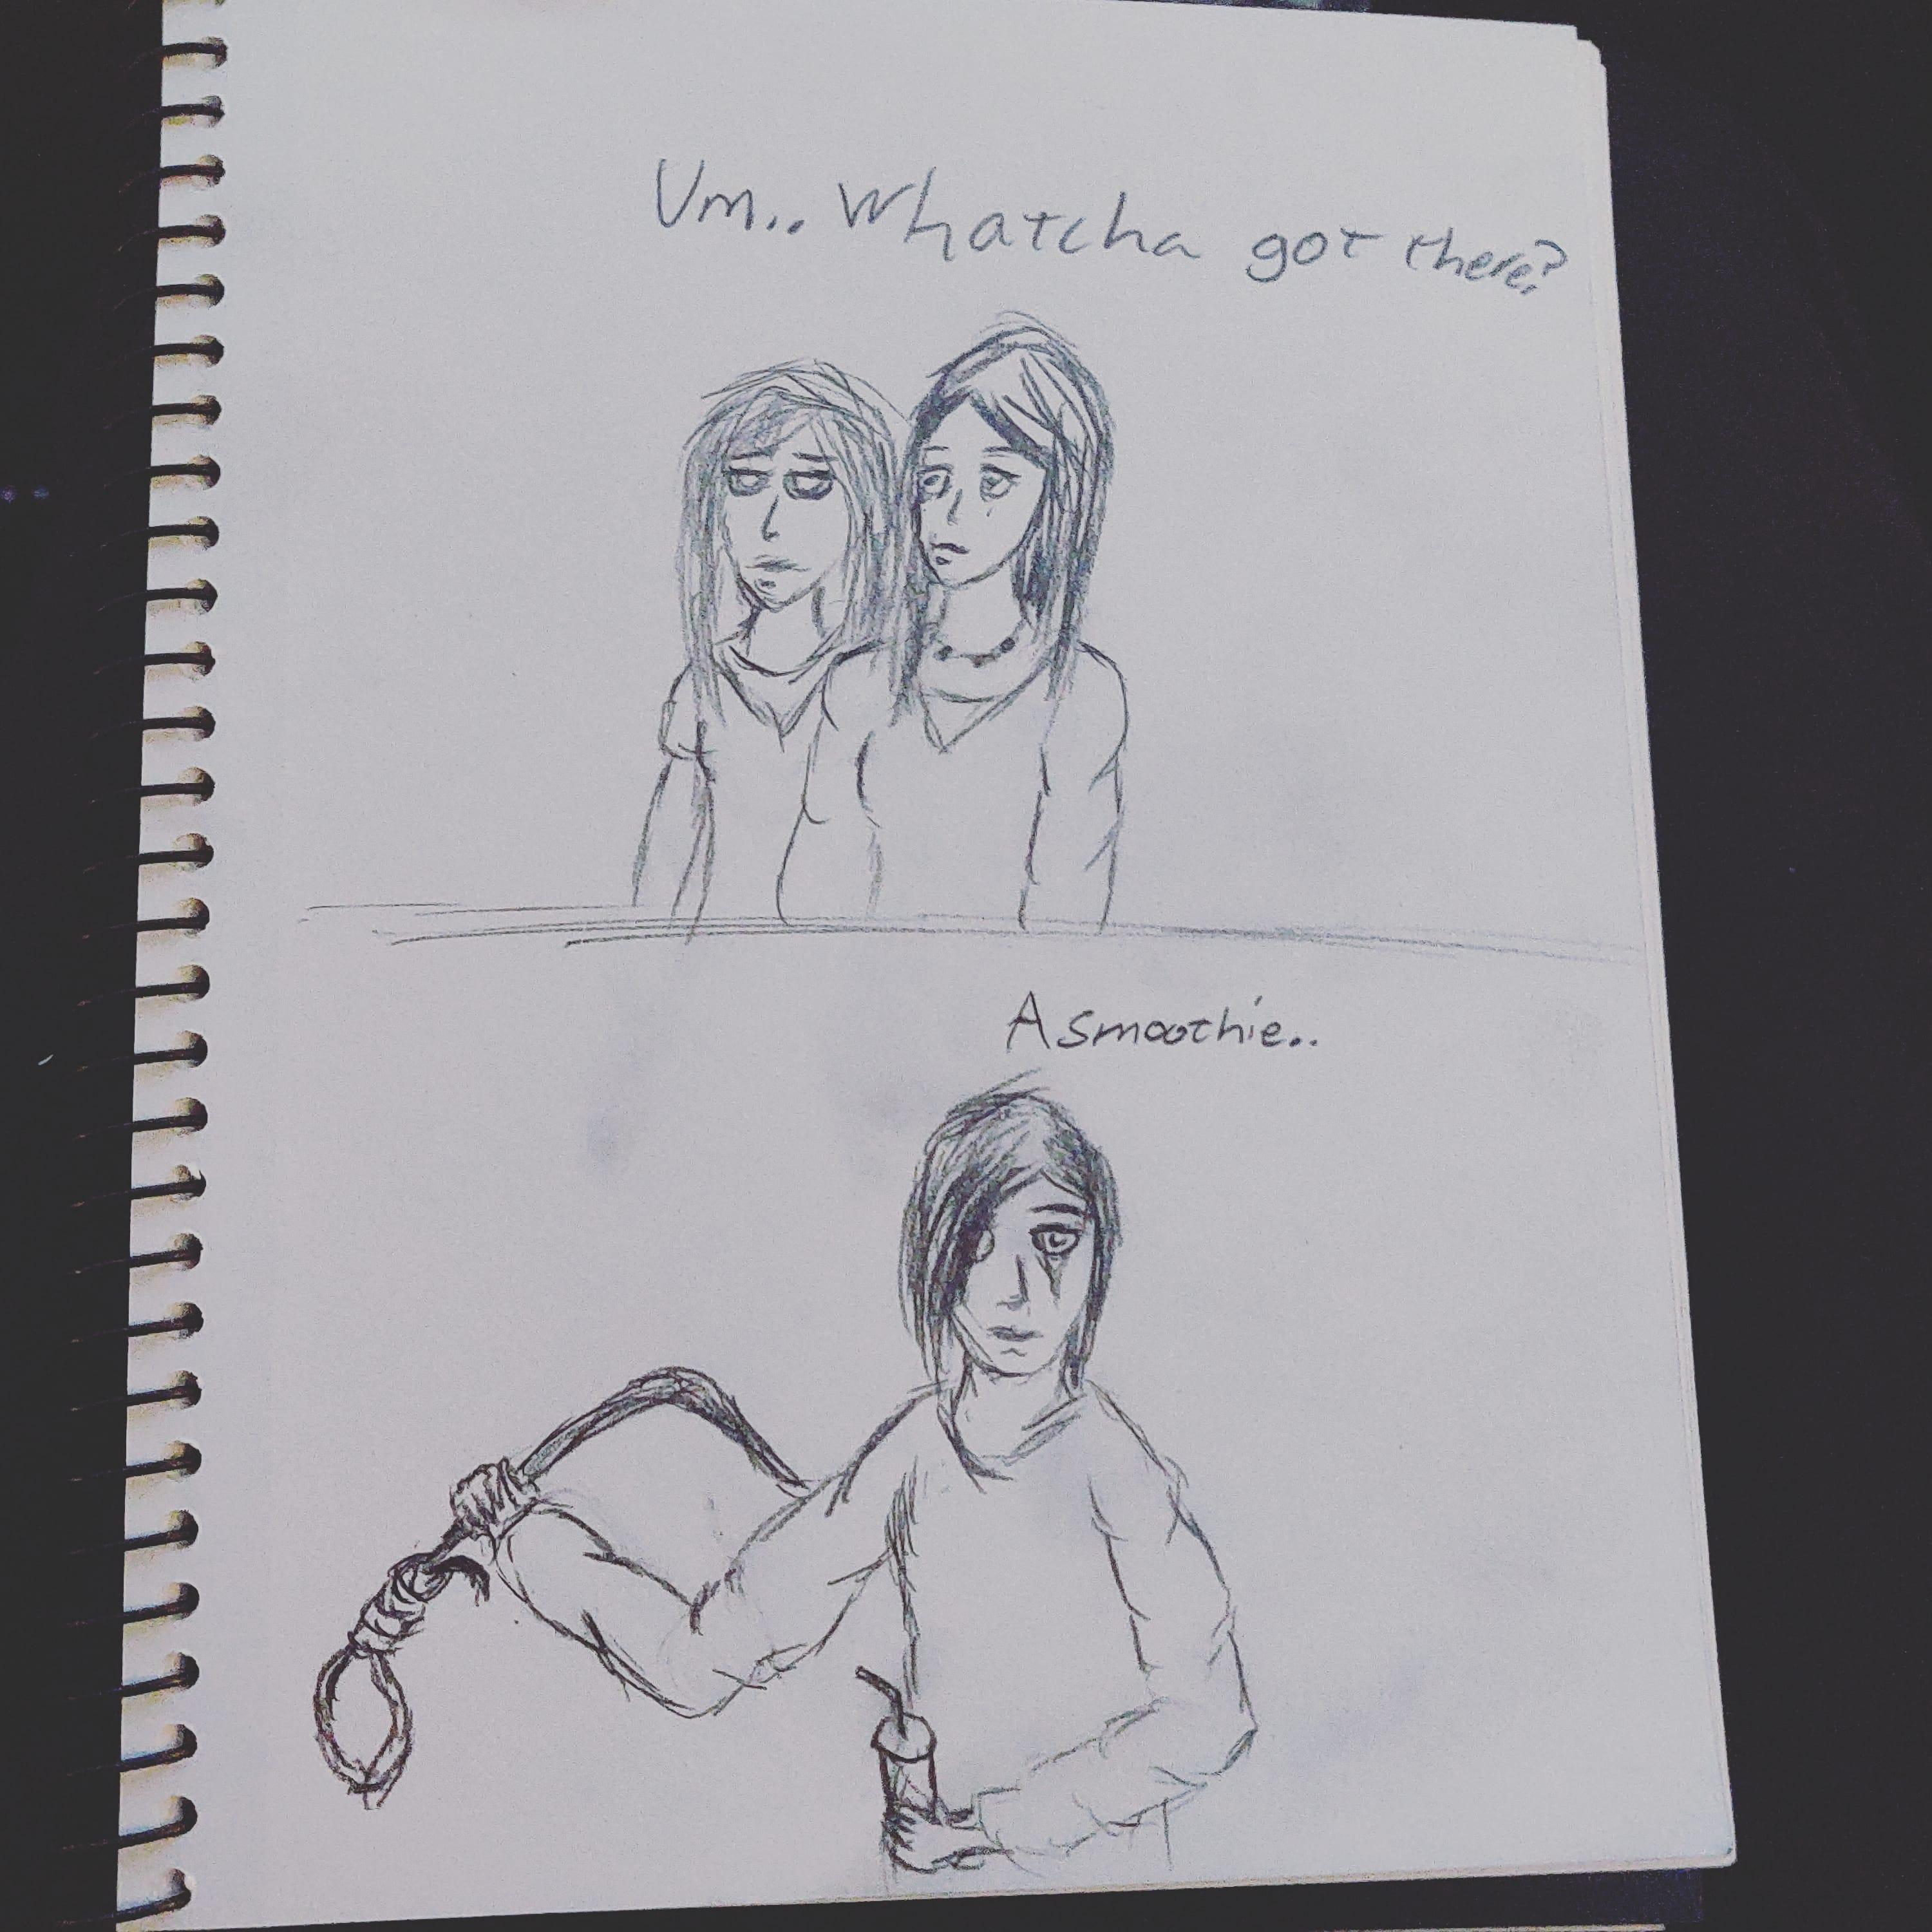 Um.. Whatcha got there?
A smoothie..